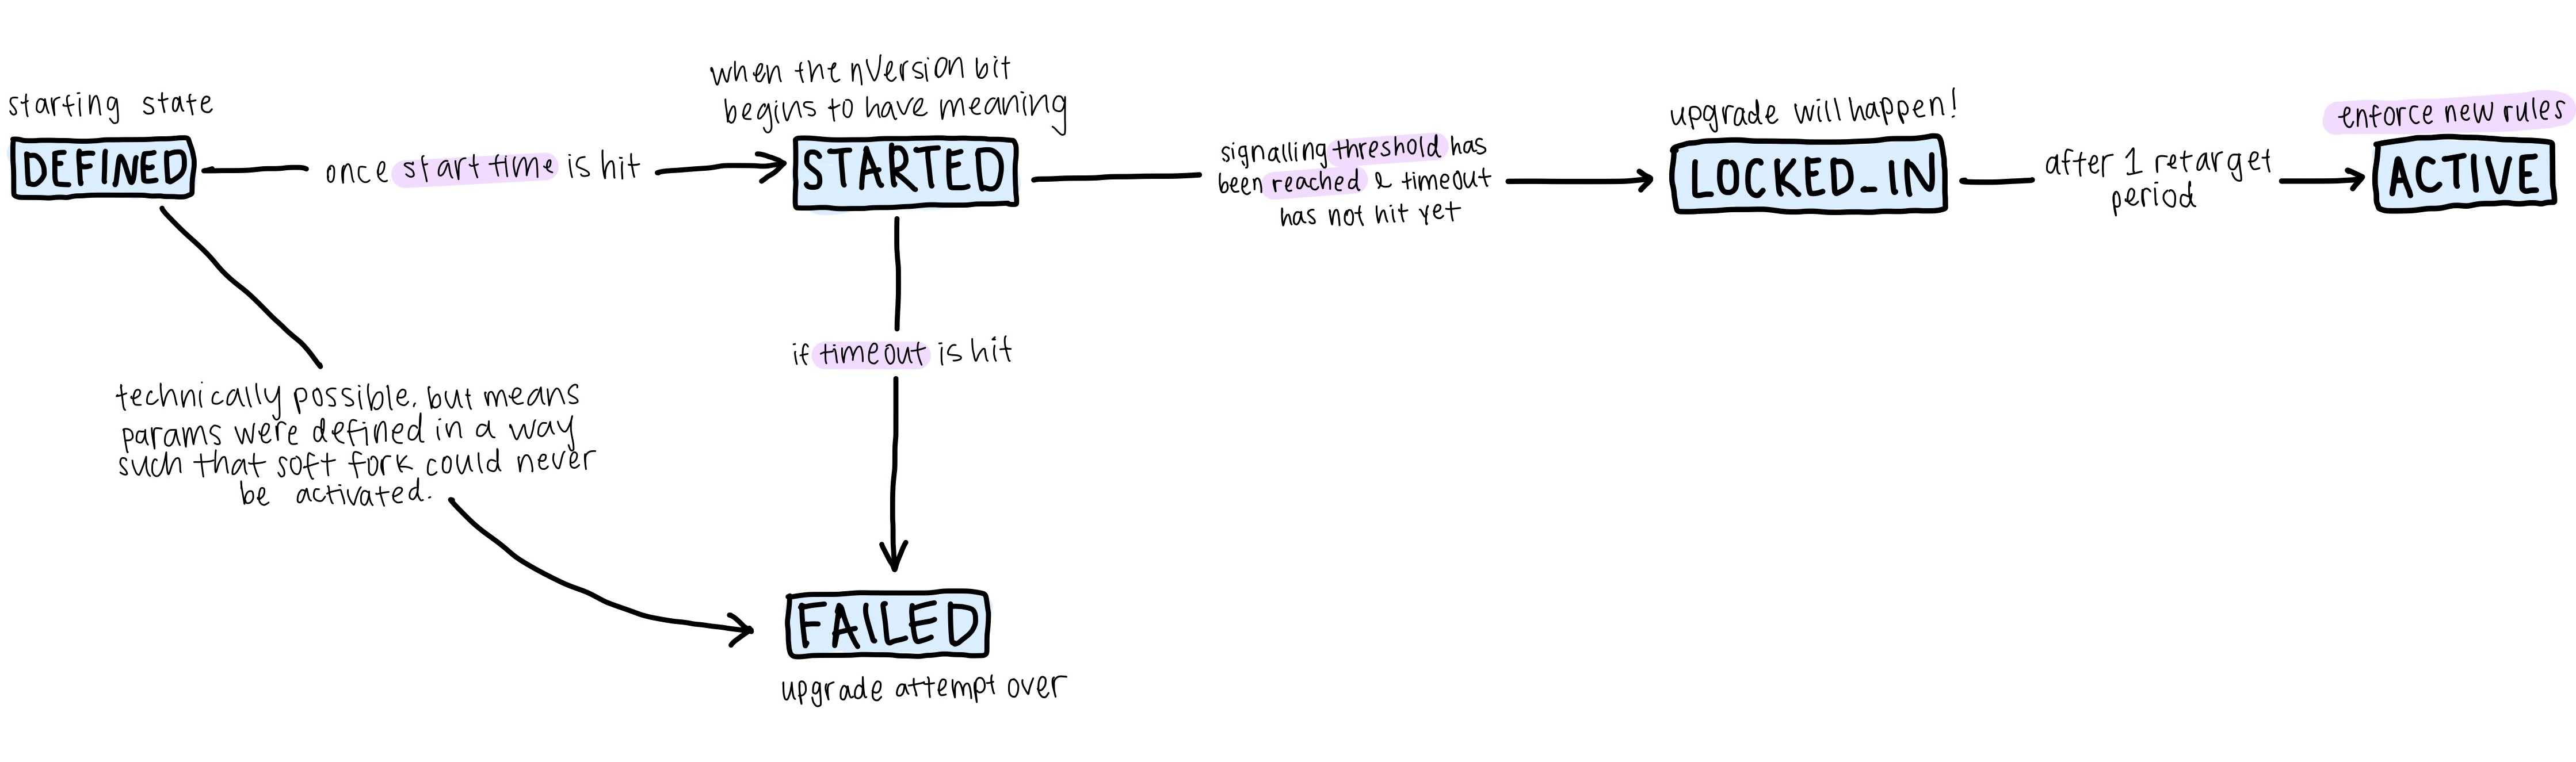 starting state
DEFINED
once start time is hit
when the nVersion bit
begins to have meaning
STARTED
signalling threshold has
been reached & timeout
has not hit yet
upgrade will happen!
LOCKED_IN
after 1 retarget
period
enforce new rules
ACTIVE
if timeout is hit
technically possible, but means
params were defined in a way
such that soft fork could never
be activated.
FAILED
upgrade attempt over